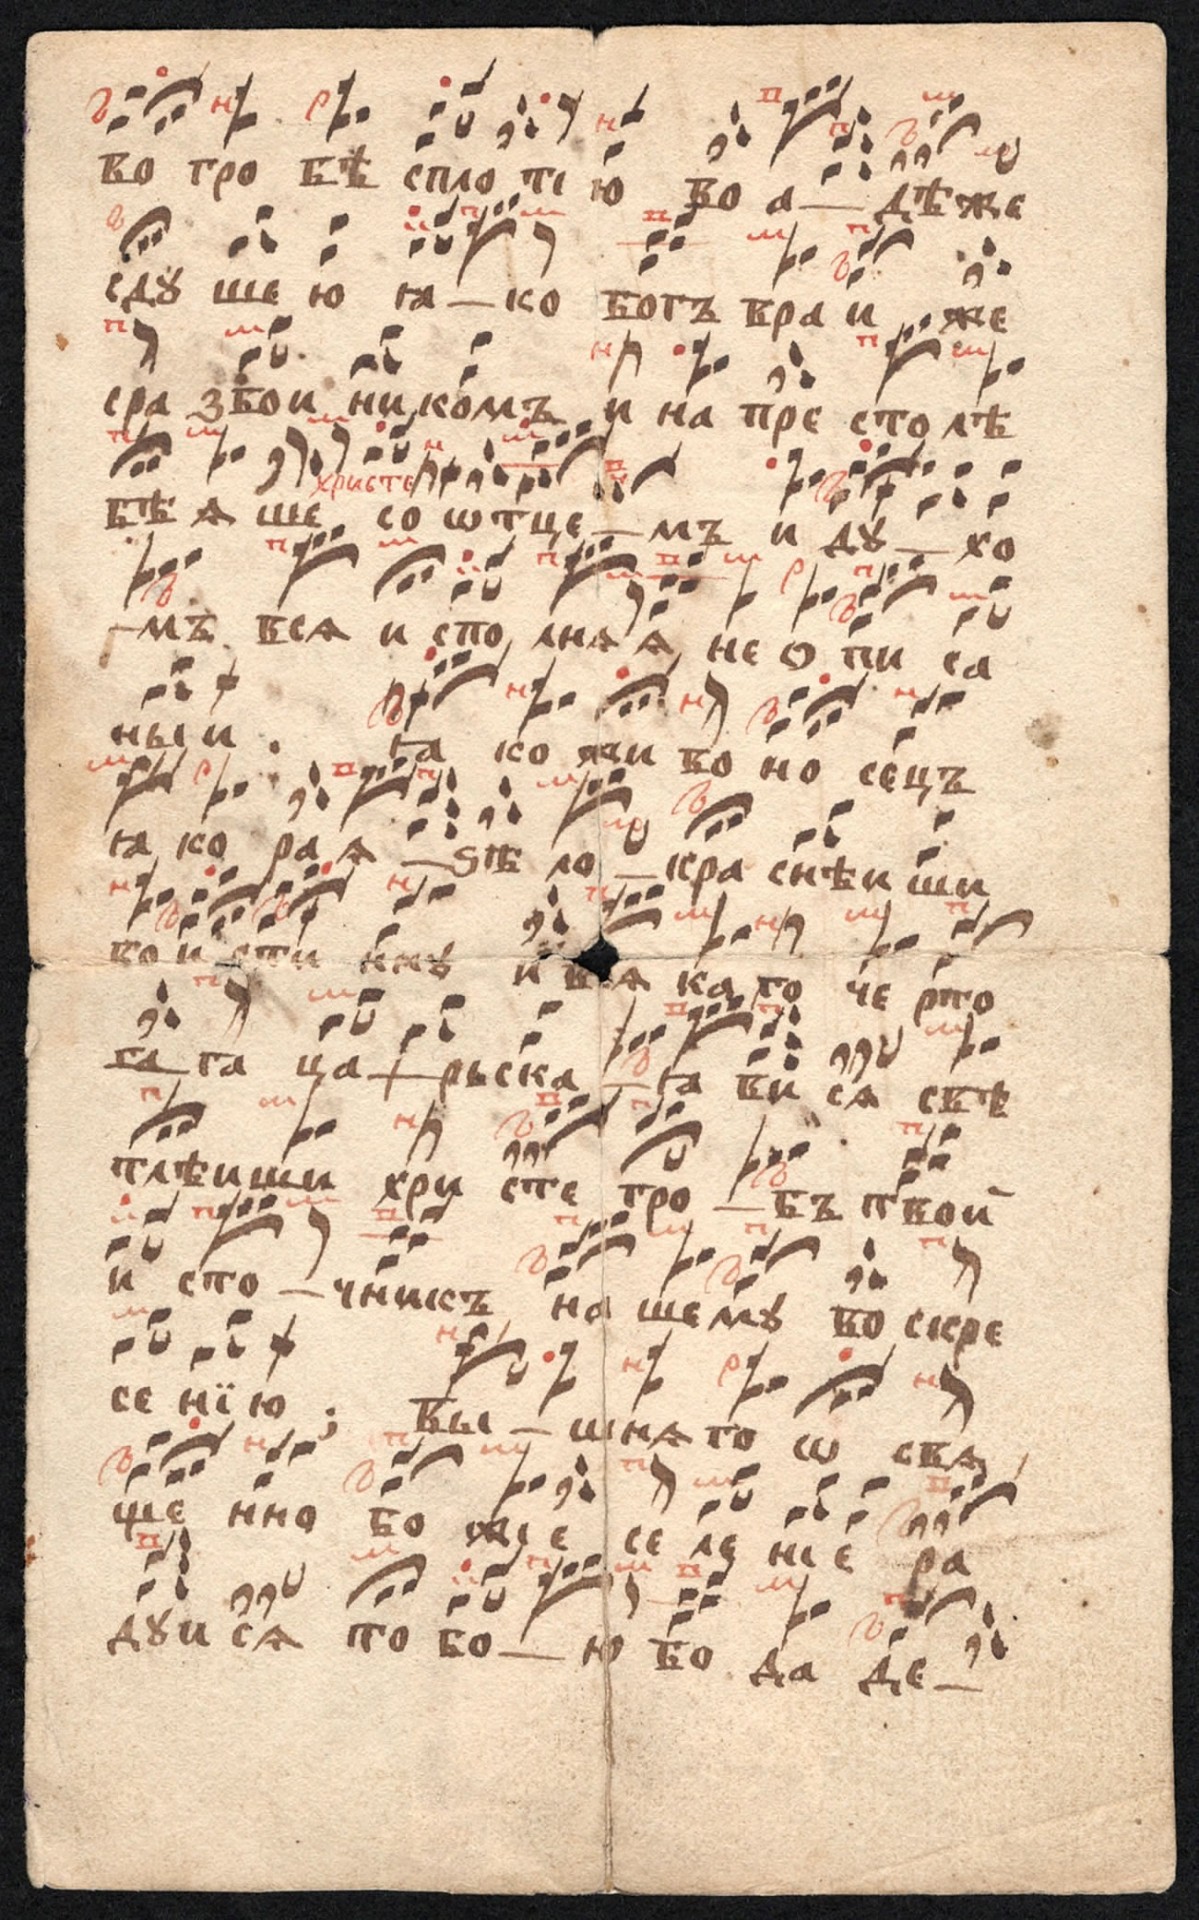 во гро бѣ спло ті ю во а — дѣ же
сдꙋ ше ю ꙗ — ко богъ вра и же
сра збои ни комъ и на пре сто лѣ
христе
бѣ ѧ ше со ѡтце — мъ и дꙋ — хо
— мъ всѧ и спо лнѧ ѧ не о пи са
ны и . ꙗ ко жи во но сецъ
ꙗ ко ра ѧ — ѕѣ ло — кра снѣи ши
во и сти ннꙋ и всѧ ка го че рто
га — га ца — рьска — ꙗ ви сѧ свѣ
тлѣиши хри сте гро — бъ твой
и сто — чникъ на шемꙋ во скре
се нїю ; вы — шнѧ го ѡ свѧ
ще нно бо жі е се ле ні е ра
дꙋи сѧ то бо — ю бо да де —